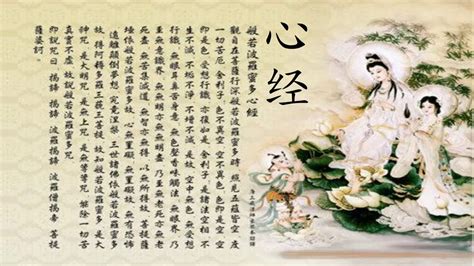 心经
般若波羅蜜多心經
觀自在菩薩行深般若波羅蜜多時 照見五蘊皆空 度
一切苦厄 舍利子 色不異空 空不異色 色即是空 空
即是色 受想行識 亦復如是 舍利子 是諸法空相 不
生不滅 不垢不淨 不增不減 是故 空中無色 無受想
行識 無眼耳鼻舌身意 無色聲香味觸法 無眼界 乃
至無意識界 無無明 亦無無明盡 乃至無老死 亦無老
死盡 無苦集滅道 無智亦無得 以無所得故 菩提
薩埵 依般若波羅蜜多故 心無罣礙 無罣礙故 無有恐怖
遠離顛倒夢想 究竟涅槃 三世諸佛 依般若波羅蜜多
故 得阿耨多羅三藐三菩提 故知般若波羅蜜多 是大
神咒 是大明咒 是無上咒 是無等等咒 能除一切苦
真實不虛 故說般若波羅蜜多咒
即說咒曰 揭諦 揭諦 波羅揭諦 波羅僧揭帝 菩提
薩婆訶